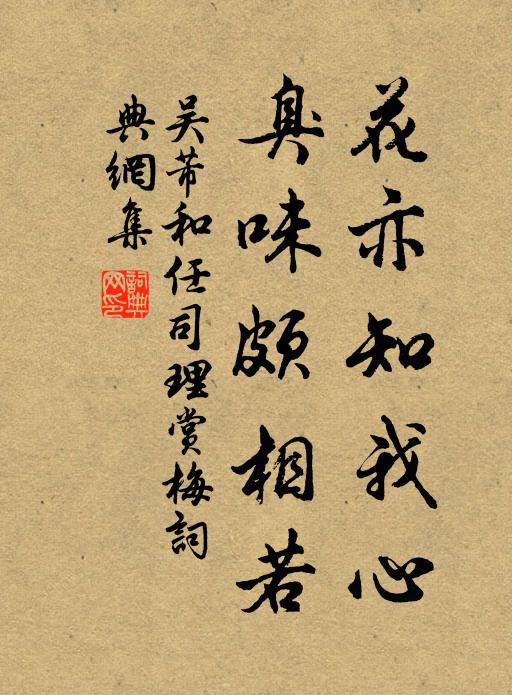 花亦知我心
臭味頗相若
吴芾和任司理赏梅詞
典網集
詞典
网印